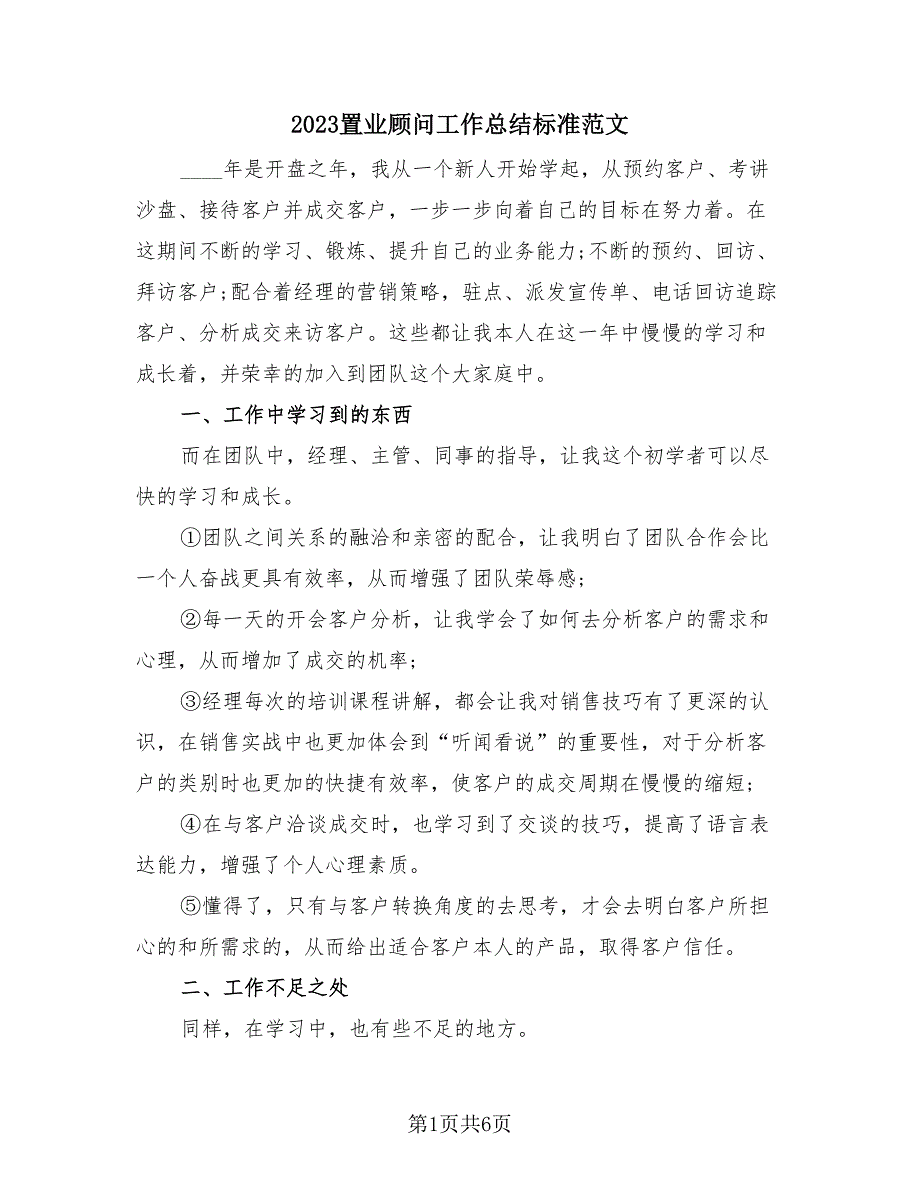 2023置业顾问工作总结标准范文
____年是开盘之年，我从一个新人开始学起，从预约客户、考讲
沙盘、接待客户并成交客户，一步一步向着自己的目标在努力着。在
这期间不断的学习、锻炼、提升自己的业务能力;不断的预约、回访、
拜访客户;配合着经理的营销策略，驻点、派发宣传单、电话回访追踪
客户、分析成交来访客户。这些都让我本人在这一年中慢慢的学习和
成长着，并荣幸的加入到团队这个大家庭中。
一、工作中学习到的东西
而在团队中，经理、主管、同事的指导，让我这个初学者可以尽
快的学习和成长。
①团队之间关系的融洽和亲密的配合，让我明白了团队合作会比
一个人奋战更具有效率，从而增强了团队荣辱感;
②每一天的开会客户分析，让我学会了如何去分析客户的需求和
心理，从而增加了成交的机率;
③经理每次的培训课程讲解，都会让我对销售技巧有了更深的认
识，在销售实战中也更加体会到“听闻看说”的重要性，对于分析客
户的类别时也更加的快捷有效率，使客户的成交周期在慢慢的缩短;
④在与客户洽谈成交时，也学习到了交谈的技巧，提高了语言表
达能力，增强了个人心理素质。
⑤懂得了，只有与客户转换角度的去思考，才会去明白客户所担
心的和所需求的，从而给出适合客户本人的产品，取得客户信任。
二、工作不足之处
同样，在学习中，也有些不足的地方。
第1页共6页